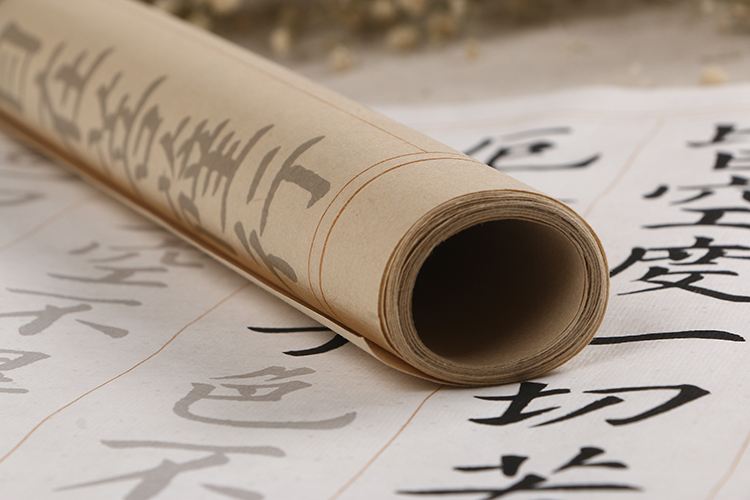 自在菩薩行
皆空度一切苦
厄
色不
空不異